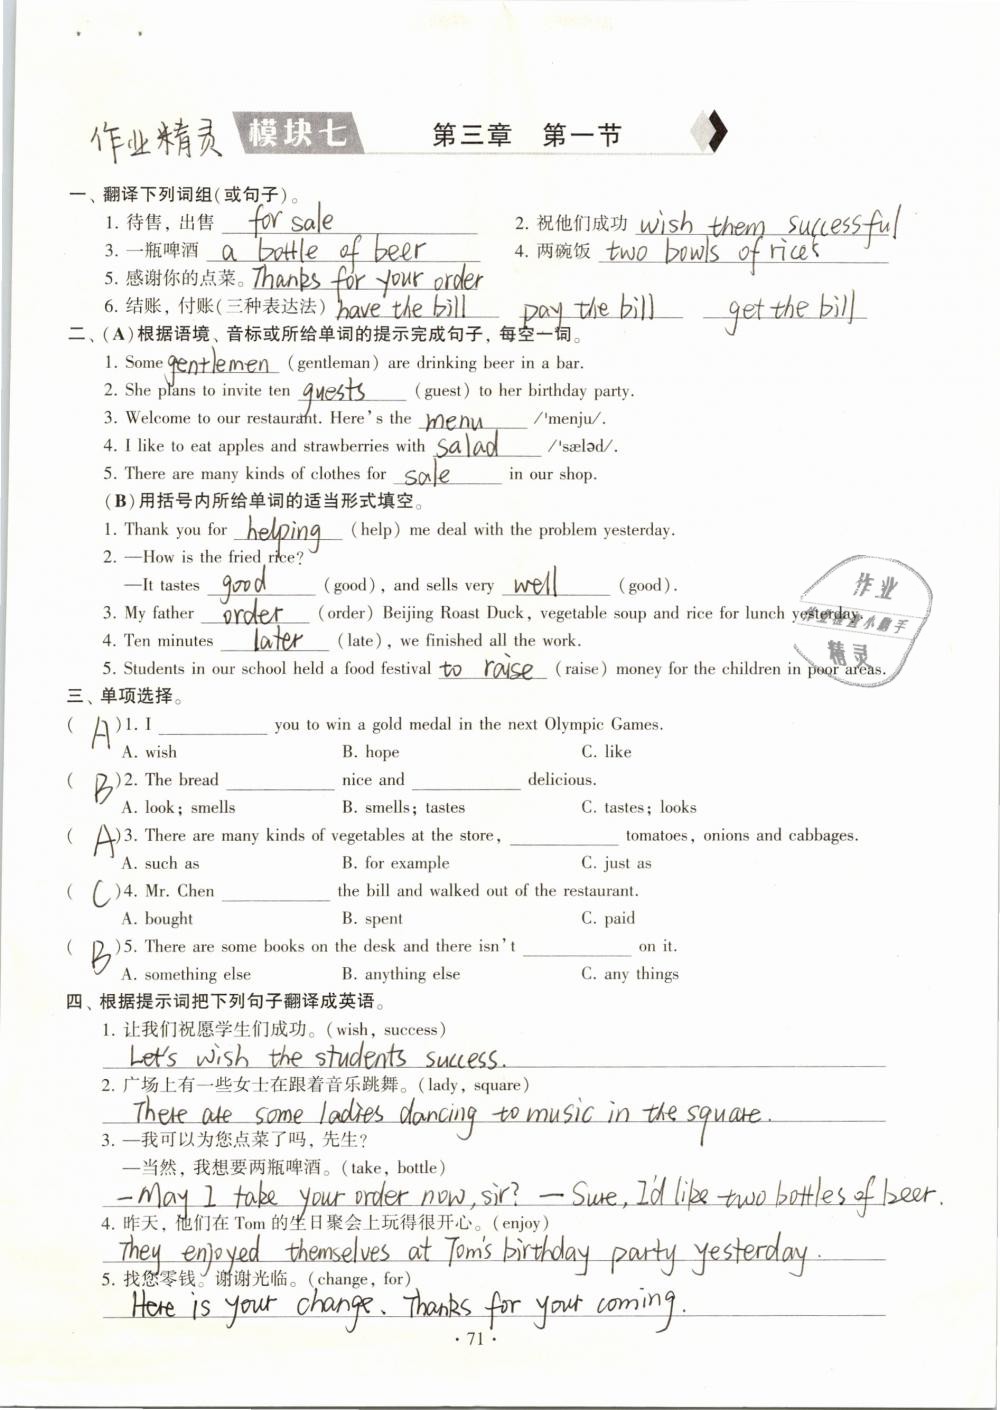 作业精灵 模块七 第三章 第一节
一、翻译下列词组(或句子)。
1. 待售，出售 for sale 2. 祝他们成功 wish them successful
3. 一瓶啤酒 a bottle of beer 4. 两碗饭 two bowls of rices
5. 感谢你的点菜。Thanks for your order
6. 结账，付账(三种表达法) have the bill pay the bill get the bill
二、(A)根据语境、音标或所给单词的提示完成句子，每空一词。
1. Some gentlemen (gentleman) are drinking beer in a bar.
2. She plans to invite ten guests (guest) to her birthday party.
3. Welcome to our restaurant. Here's the menu /'menju/.
4. I like to eat apples and strawberries with salad /'sæləd/.
5. There are many kinds of clothes for sale in our shop.
(B)用括号内所给单词的适当形式填空。
1. Thank you for helping (help) me deal with the problem yesterday.
2. —How is the fried rice?
—It tastes good (good), and sells very well (good).
3. My father order (order) Beijing Roast Duck, vegetable soup and rice for lunch yesterday.
4. Ten minutes later (late), we finished all the work.
5. Students in our school held a food festival to raise (raise) money for the children in poor areas.
作业
精灵
三、单项选择。
( A )1. I ____ you to win a gold medal in the next Olympic Games.
A. wish B. hope C. like
( B )2. The bread ____ nice and ____ delicious.
A. look; smells B. smells; tastes C. tastes; looks
( A )3. There are many kinds of vegetables at the store, ____ tomatoes, onions and cabbages.
A. such as B. for example C. just as
( C )4. Mr. Chen ____ the bill and walked out of the restaurant.
A. bought B. spent C. paid
( B )5. There are some books on the desk and there isn't ____ on it.
A. something else B. anything else C. any things
四、根据提示词把下列句子翻译成英语。
1. 让我们祝愿学生们成功。(wish, success)
Let's wish the students success.
2. 广场上有一些女士在跟着音乐跳舞。(lady, square)
There are some ladies dancing to music in the square.
3. —我可以为您点菜了吗，先生?
—当然，我想要两瓶啤酒。(take, bottle)
—May I take your order now, sir? — Sure, I'd like two bottles of beer.
4. 昨天，他们在 Tom 的生日聚会上玩得很开心。(enjoy)
They enjoyed themselves at Tom's birthday party yesterday.
5. 找您零钱。谢谢光临。(change, for)
Here is your change、Thanks for your coming.
· 71 ·